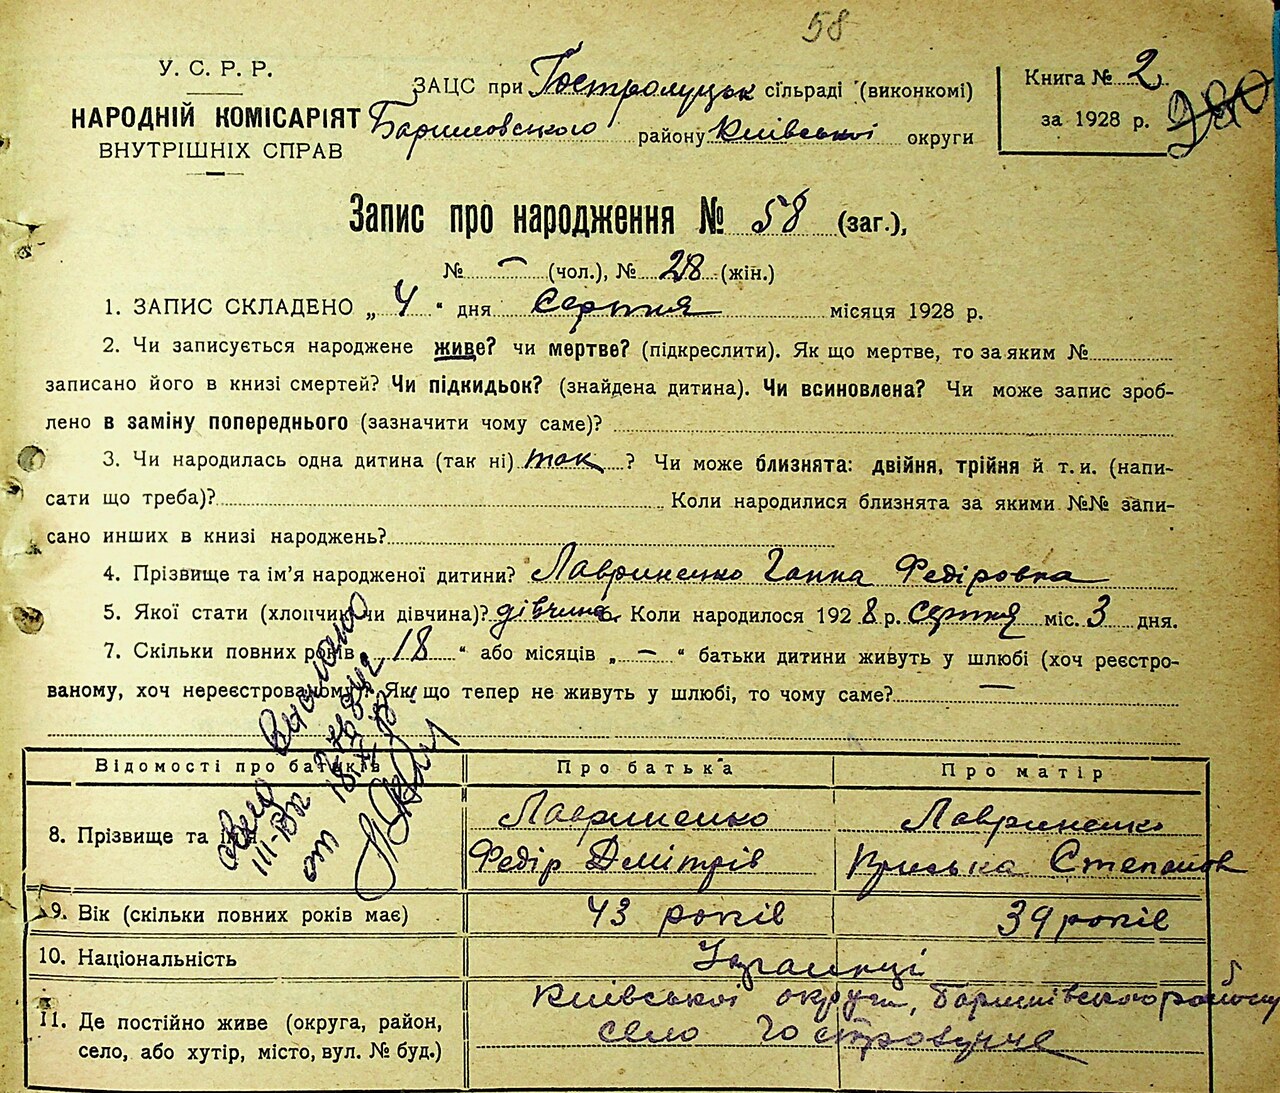 58
У. С. Р. Р.
НАРОДНІЙ КОМІСАРІЯТ
ВНУТРІШНІХ СПРАВ
ЗАЦС при Гостролуцьк сільраді (виконкомі)
району Київської округи
Книга № 2
за 1928 р.
280
Запис про народження № 58 (заг.),
№ – (чол.), № 28 (жін.)
1. ЗАПИС СКЛАДЕНО „ 4 “ дня Серпня місяця 1928 р.
2. Чи записується народжене живе? чи мертве? (підкреслити). Як що мертве, то за яким №
записано його в книзі смертей? Чи підкидьок? (знайдена дитина). Чи всиновлена? Чи може запис зроб-
лено в заміну попереднього (зазначити чому саме)?
3. Чи народилась одна дитина (так ні) так ? Чи може близнята: двійня, трійня й т. и. (напи-
сати що треба)? Коли народилися близнята за якими №№ запи-
сано инших в книзі народжень?
4. Прізвище та ім'я народженої дитини? Лавриненко Ганна Федіровна
5. Якої стати (хлопчик чи дівчина)? дівчина Коли народилося 1928 р. серпня міс. 3 дня.
7. Скільки повних років 18 “ або місяців „ – “ батьки дитини живуть у шлюбі (хоч реєстро-
ваному, хоч нереєстрованому)? Як що тепер не живуть у шлюбі, то чому саме? —
Відомості про батьків Про батька Про матір
8. Прізвище та Лавриненко Лавриненко
Федір Дмітрів Степанов
9. Вік (скільки повних років має) 43 років 39 років
10. Національність Українці
11. Де постійно живе (округа, район, Київської округи, Баришівського району
село, або хутір, місто, вул. № буд.) село Гостролуччє